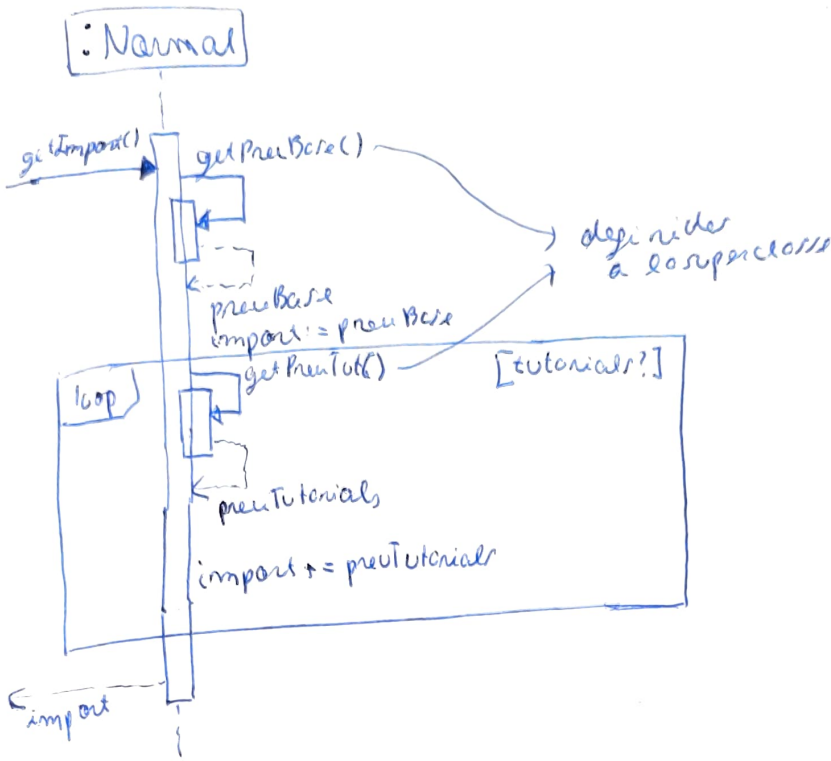 :Normal
getImport()
getPreuBase()
definides
a la superclasse
preuBase
import := preuBase
loop
getPreuTut()
[tutorials?]
preuTutorials
import += preuTutorials
import